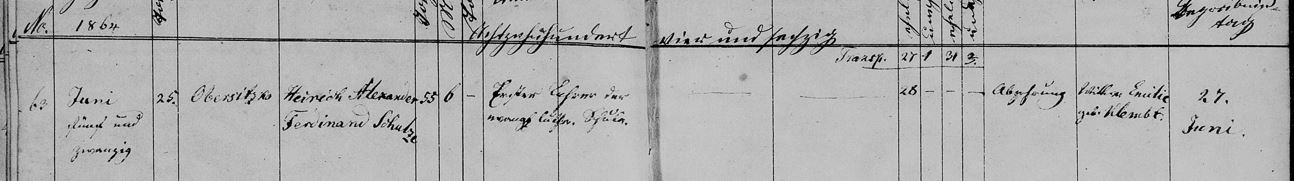 No. 1864 Begräbniß-
tag
Achtzehnhundert vier und sechzig
Transp. 27 1 31 3.
63 Juni 25. Obersitzko Heinrich Alexander 55 6 – Erster Lehrer der 28 – – – Abzehrung Wittwe Emilie 27.
fünf und Ferdinand Schulze evangl. luthr. Schule. geb. Klembt. Juni.
zwanzig